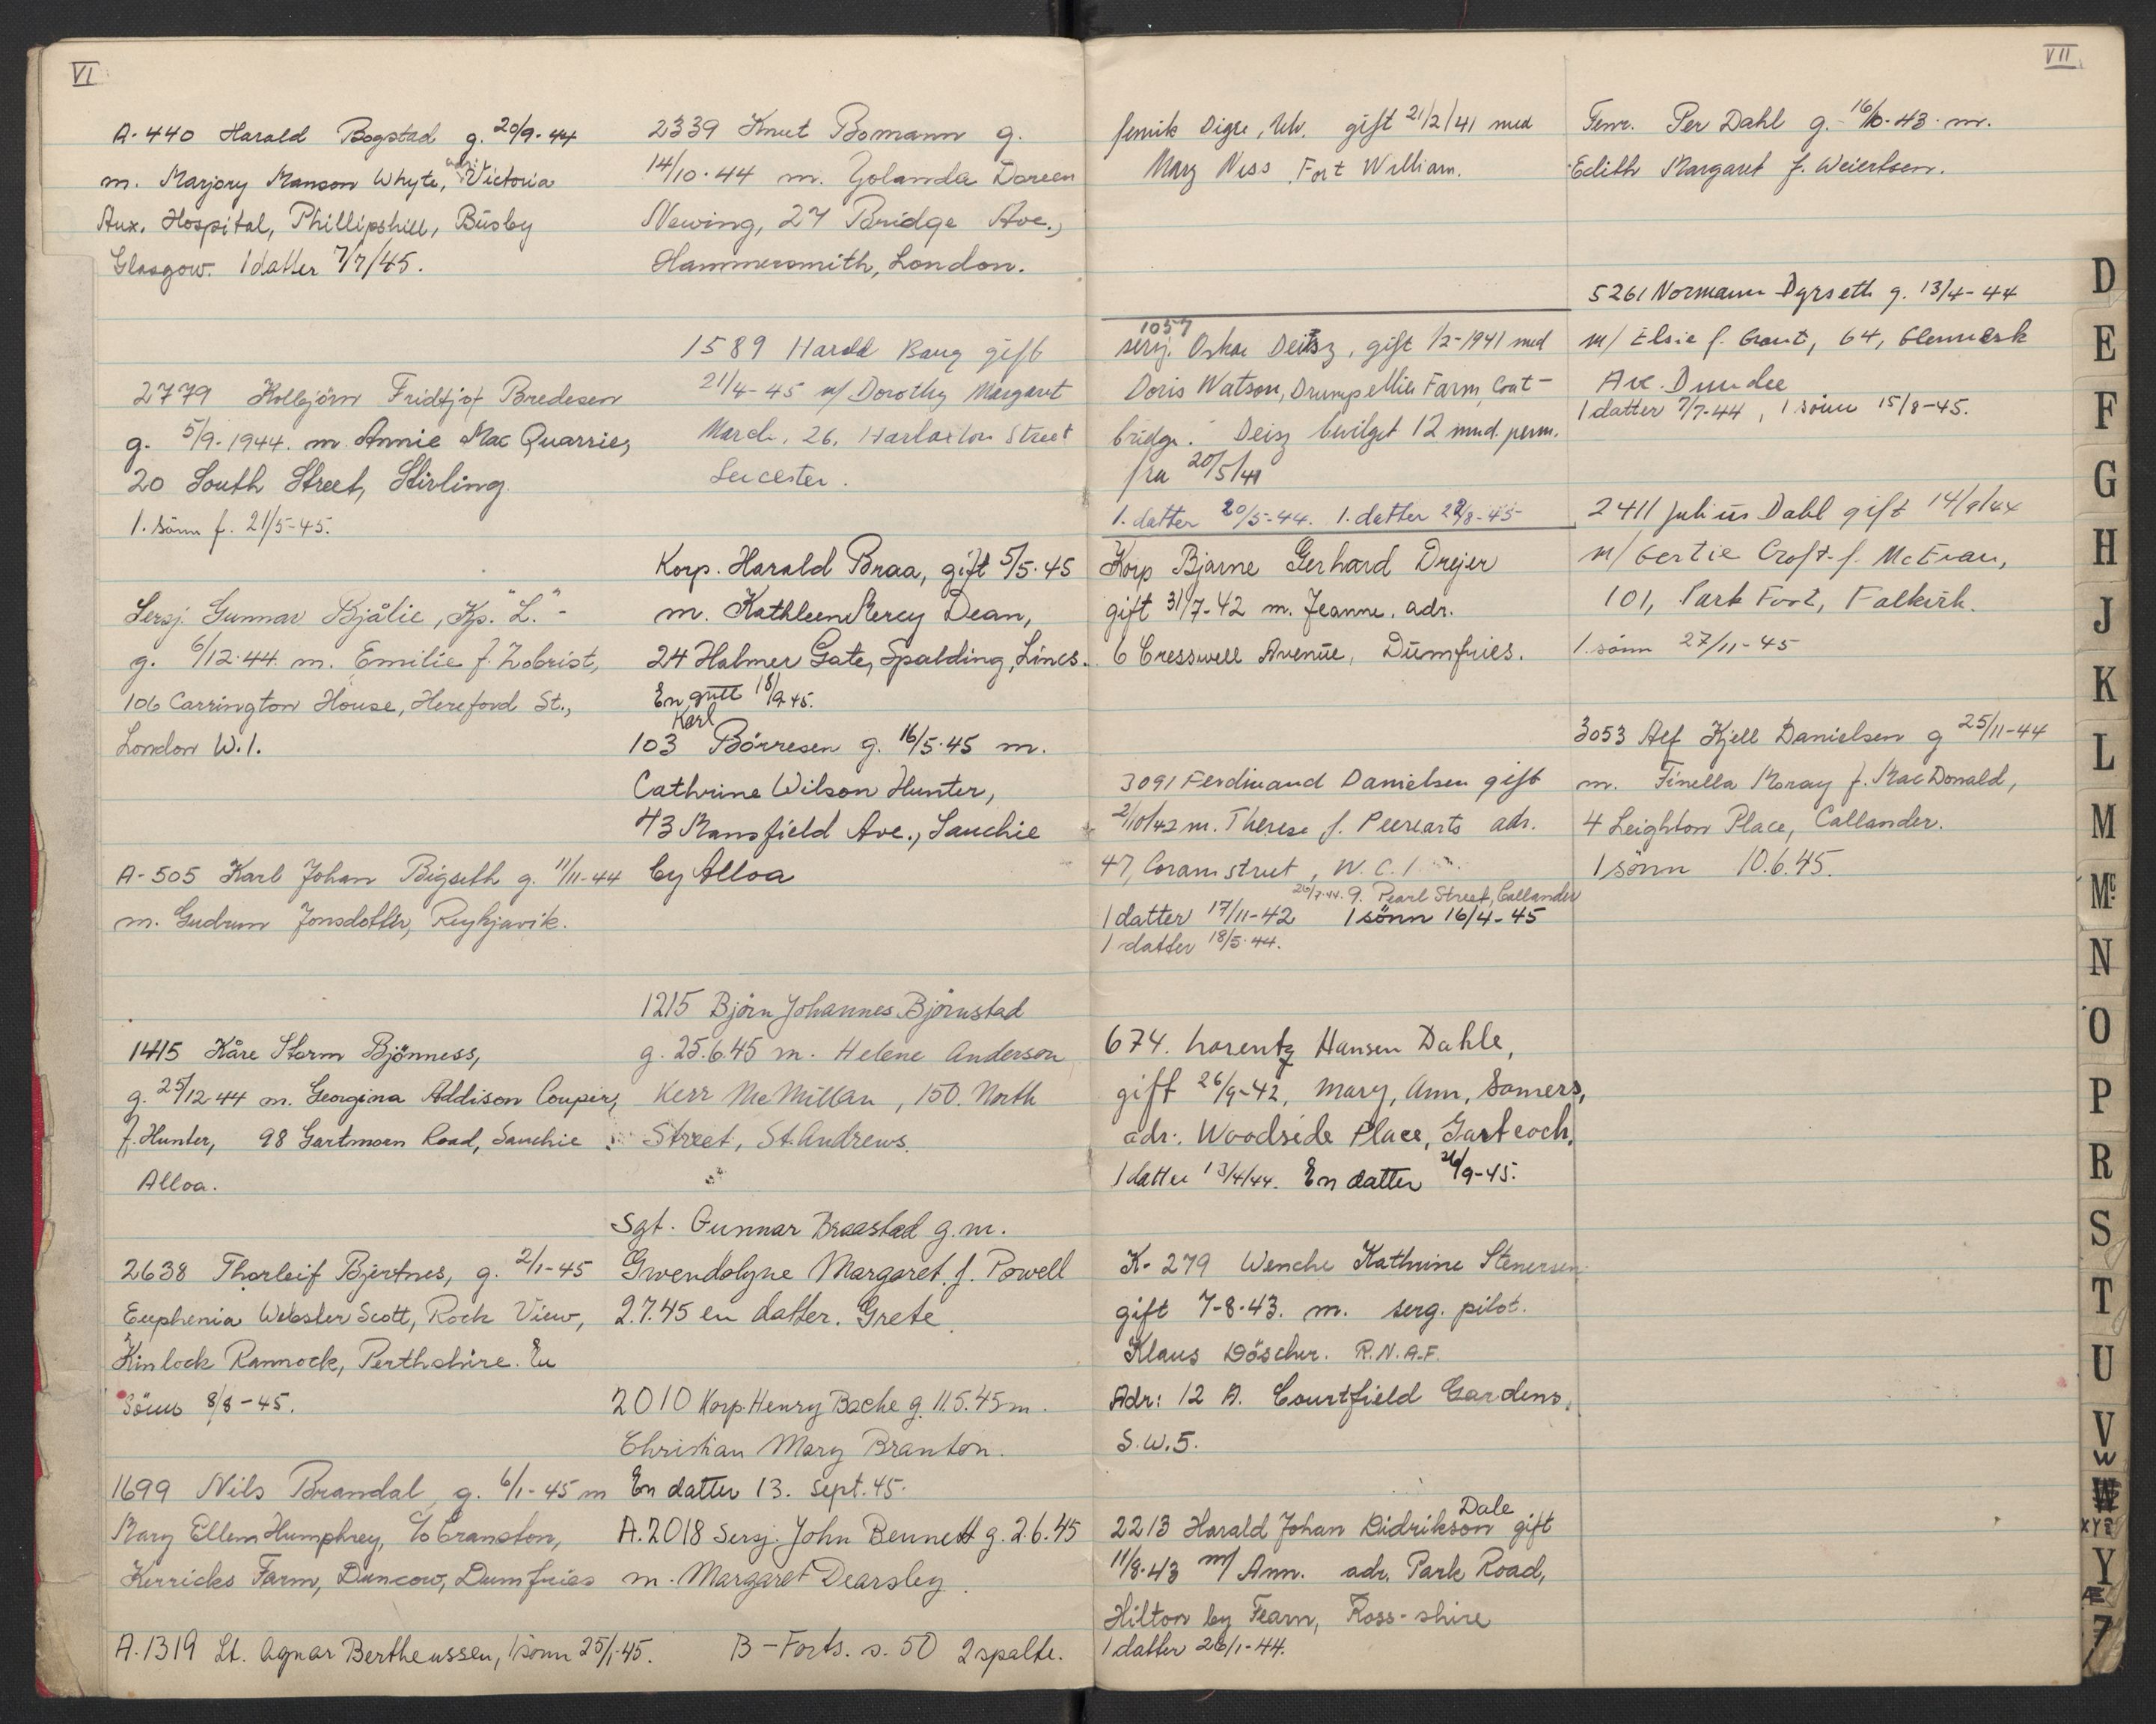 VI
A-440 Harald Bogstad g. 20/9-44
m. Marjory Manson Whyte, adr: Victoria
Aux. Hospital, Phillipshill, Busby
Glasgow. 1 datter 7/7/45.
2779 Kolbjörn Fridtjof Bredesen
g. 5/9-1944. m. Annie Mac Quarrie,
20 South Street, Stirling.
1. sönn f. 21/5-45.
Sersj. Gunnar Bjålie, Kp. "L."-
g. 6/12.44. m. Emilie f. Zobrist,
106 Carrington House, Hereford St.,
London W.1.
A-505 Karl Johan Bigseth g. 11/11-44
m. Gudrun Jonsdotter, Reykjavik.
1415 Kåre Storm Bjönness,
g. 25/12 44 m. Georgina Addison Couper,
f. Hunter, 98 Gartmorn Road, Sauchie
Alloa.
2638 Thorleif Bjertnes, g. 2/1-45
Euphenia Webster Scott, Rock View,
Kinlock Rannock, Perthshire. En
Sönn 8/8-45.
1699 Nils Brandal, g. 6/1-45 m
Mary Ellen Humphrey, c/o Cranston,
Kerricks Farm, Duncow, Dumfries
A.1319 Lt. Agnar Bertheussen, 1 sönn 25/1-45.
2339 Knut Bomann g.
14/10.44 m. Yolanda Doreen
Newing, 27 Bridge Ave.,
Hammersmith, London.
1589 Harald Baug gift
21/4-45 m/ Dorothy Margaret
March, 26, Harlaxton Street
Leicester.
Korp. Harald Braa, gift 5/5.45
m. Kathleen Mercy Dean,
24 Halmer Gate, Spalding, Lincs.
En gutt 18/9 45.
Karl
103 Börresen g. 16/5.45 m.
Cathrine Wilson Hunter,
43 Mansfield Ave., Sauchie
by Alloa
1215 Björn Johannes Björnstad
g. 25.6.45 m. Helene Anderson
Kerr McMillan, 150. North
Street, St. Andrews.
Sgt. Gunnar Braastad g. m.
Gwendolyne Margaret f. Powell
2.7.45 en datter. Grete.
2010 Korp. Henry Bache g. 11.5.45 m.
Christian Mary Branton.
En datter 13. Sept. 45.
A.2018 Sersj. John Bennett g. 2.6.45
m. Margaret Dearsley.
B-Forts. s. 50 2 spalte.
VII
fenrik Digre, gift 21/2/41 med
Mary Ness, Fort William.
1057
serg. Oskar Deisz, gift 1/2-1941 med
Doris Watson, Drumpellier Farm, Coat-
bridge. Deisz bevilget 12 mnd. perm.
fra 20/5/41
1. datter 20/5-44. 1. datter 22/8-45
Korp Bjarne Gerhard Drejer
gift 31/7-42 m. Jeanne. adr.
6 Cresswell Avenue, Dumfries.
3091 Ferdinand Danielsen gift
2/10/42 m. Therese f. Peerearts adr.
47, Coram street, W.C.1
26/7-44. 9. Pearl Street, Callander
1 datter 17/11-42 1 sönn 16/4-45
1 datter 18/5.44.
674. Lorentz Hansen Dahle,
gift 26/9-42, Mary, Ann, Somers,
adr. Woodside Place, Gartcoch.
1 datter 13/4/44. En datter 26/9-45.
K-279 Wenche Kathrine Stenersen
gift 7-8.43. m. serg. pilot.
Klaus Döscher. R.N.A.F.
Adr: 12 A. Courtfield Gardens,
S.W.5.
Dale
2213 Harald Johan Didrikson gift
11/8.43 m/ Ann. adr. Park Road,
Hilton by Fearn, Ross-shire
1 datter 26/1-44.
Fenr. Per Dahl g. 16/10-43. m.
Edith Margaret f. Weiertsen.
5261 Normann Dyrseth g. 13/4-44
m/ Elsie f. Grant, 64, Glenesk
Ave. Dundee
1 datter 7/7-44, 1 sönn 15/8-45.
2411 Julius Dahl gift 14/9/44
m/ Gertie Croft f. McEwan,
101, Park Foot, Falkirk.
1. sönn 27/11-45
3053 Alf Kjell Danielsen g 25/11-44
m. Finella Moray f. MacDonald,
4 Leighton Place, Callander.
1 sönn 10.6.45.
D
E
F
G
H
J
K
L
M
Mc
N
O
P
R
S
T
U
V
W
W
XYZ
Y
Æ